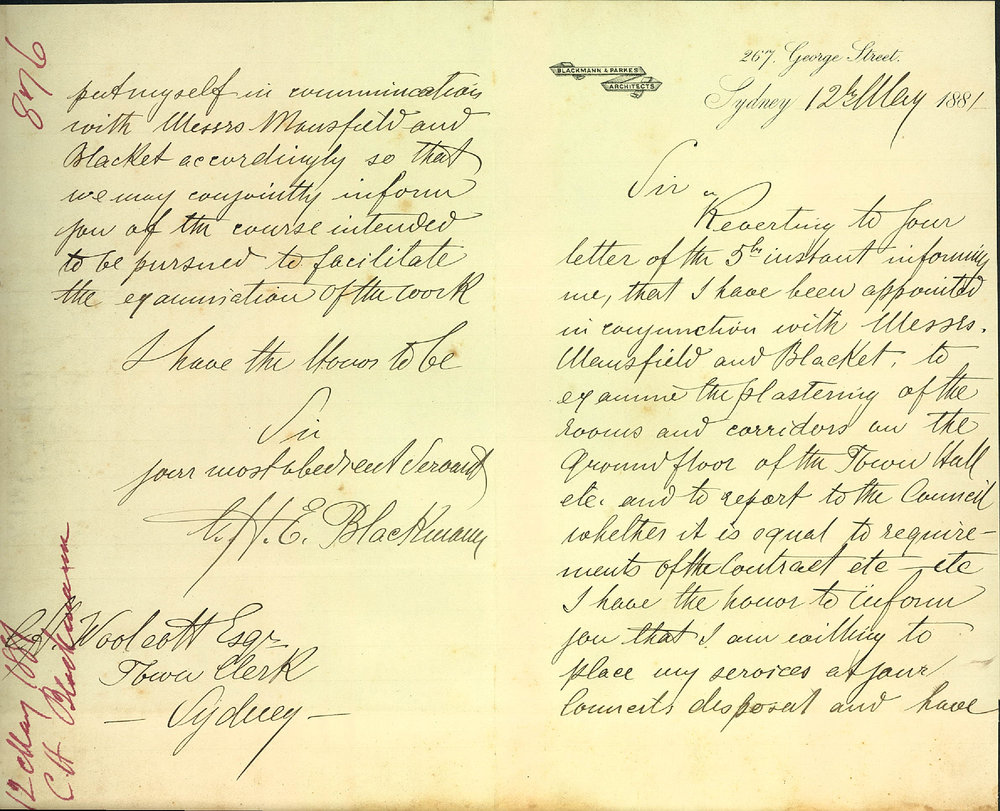 267. George Street.
BLACKMANN & PARKES
ARCHITECTS
Sydney 12th May 1881
Sir
Reverting to your
letter of the 5th instant informing
me, that I have been appointed
in conjunction with Messrs.
Mansfield and Blacket, to
examine the plastering of the
rooms and corridors on the
Ground floor of the Town Hall
etc. and to report to the Council
whether it is equal to require-
ments of the Contract etc - etc
I have the honor to inform
you that I am willing to
place my services at your
Councils disposal and have
put myself in communication
with Messrs Mansfield and
Blacket accordingly so that
we may conjointly inform
you of the course intended
to be pursued to facilitate
the examination of the work
I have the Honor to be
Sir
your most obedient Servant
C. H. E. Blackmann
Woolcott Esqr
Town Clerk
- Sydney -
876
12 May 1881
C H Blackmann